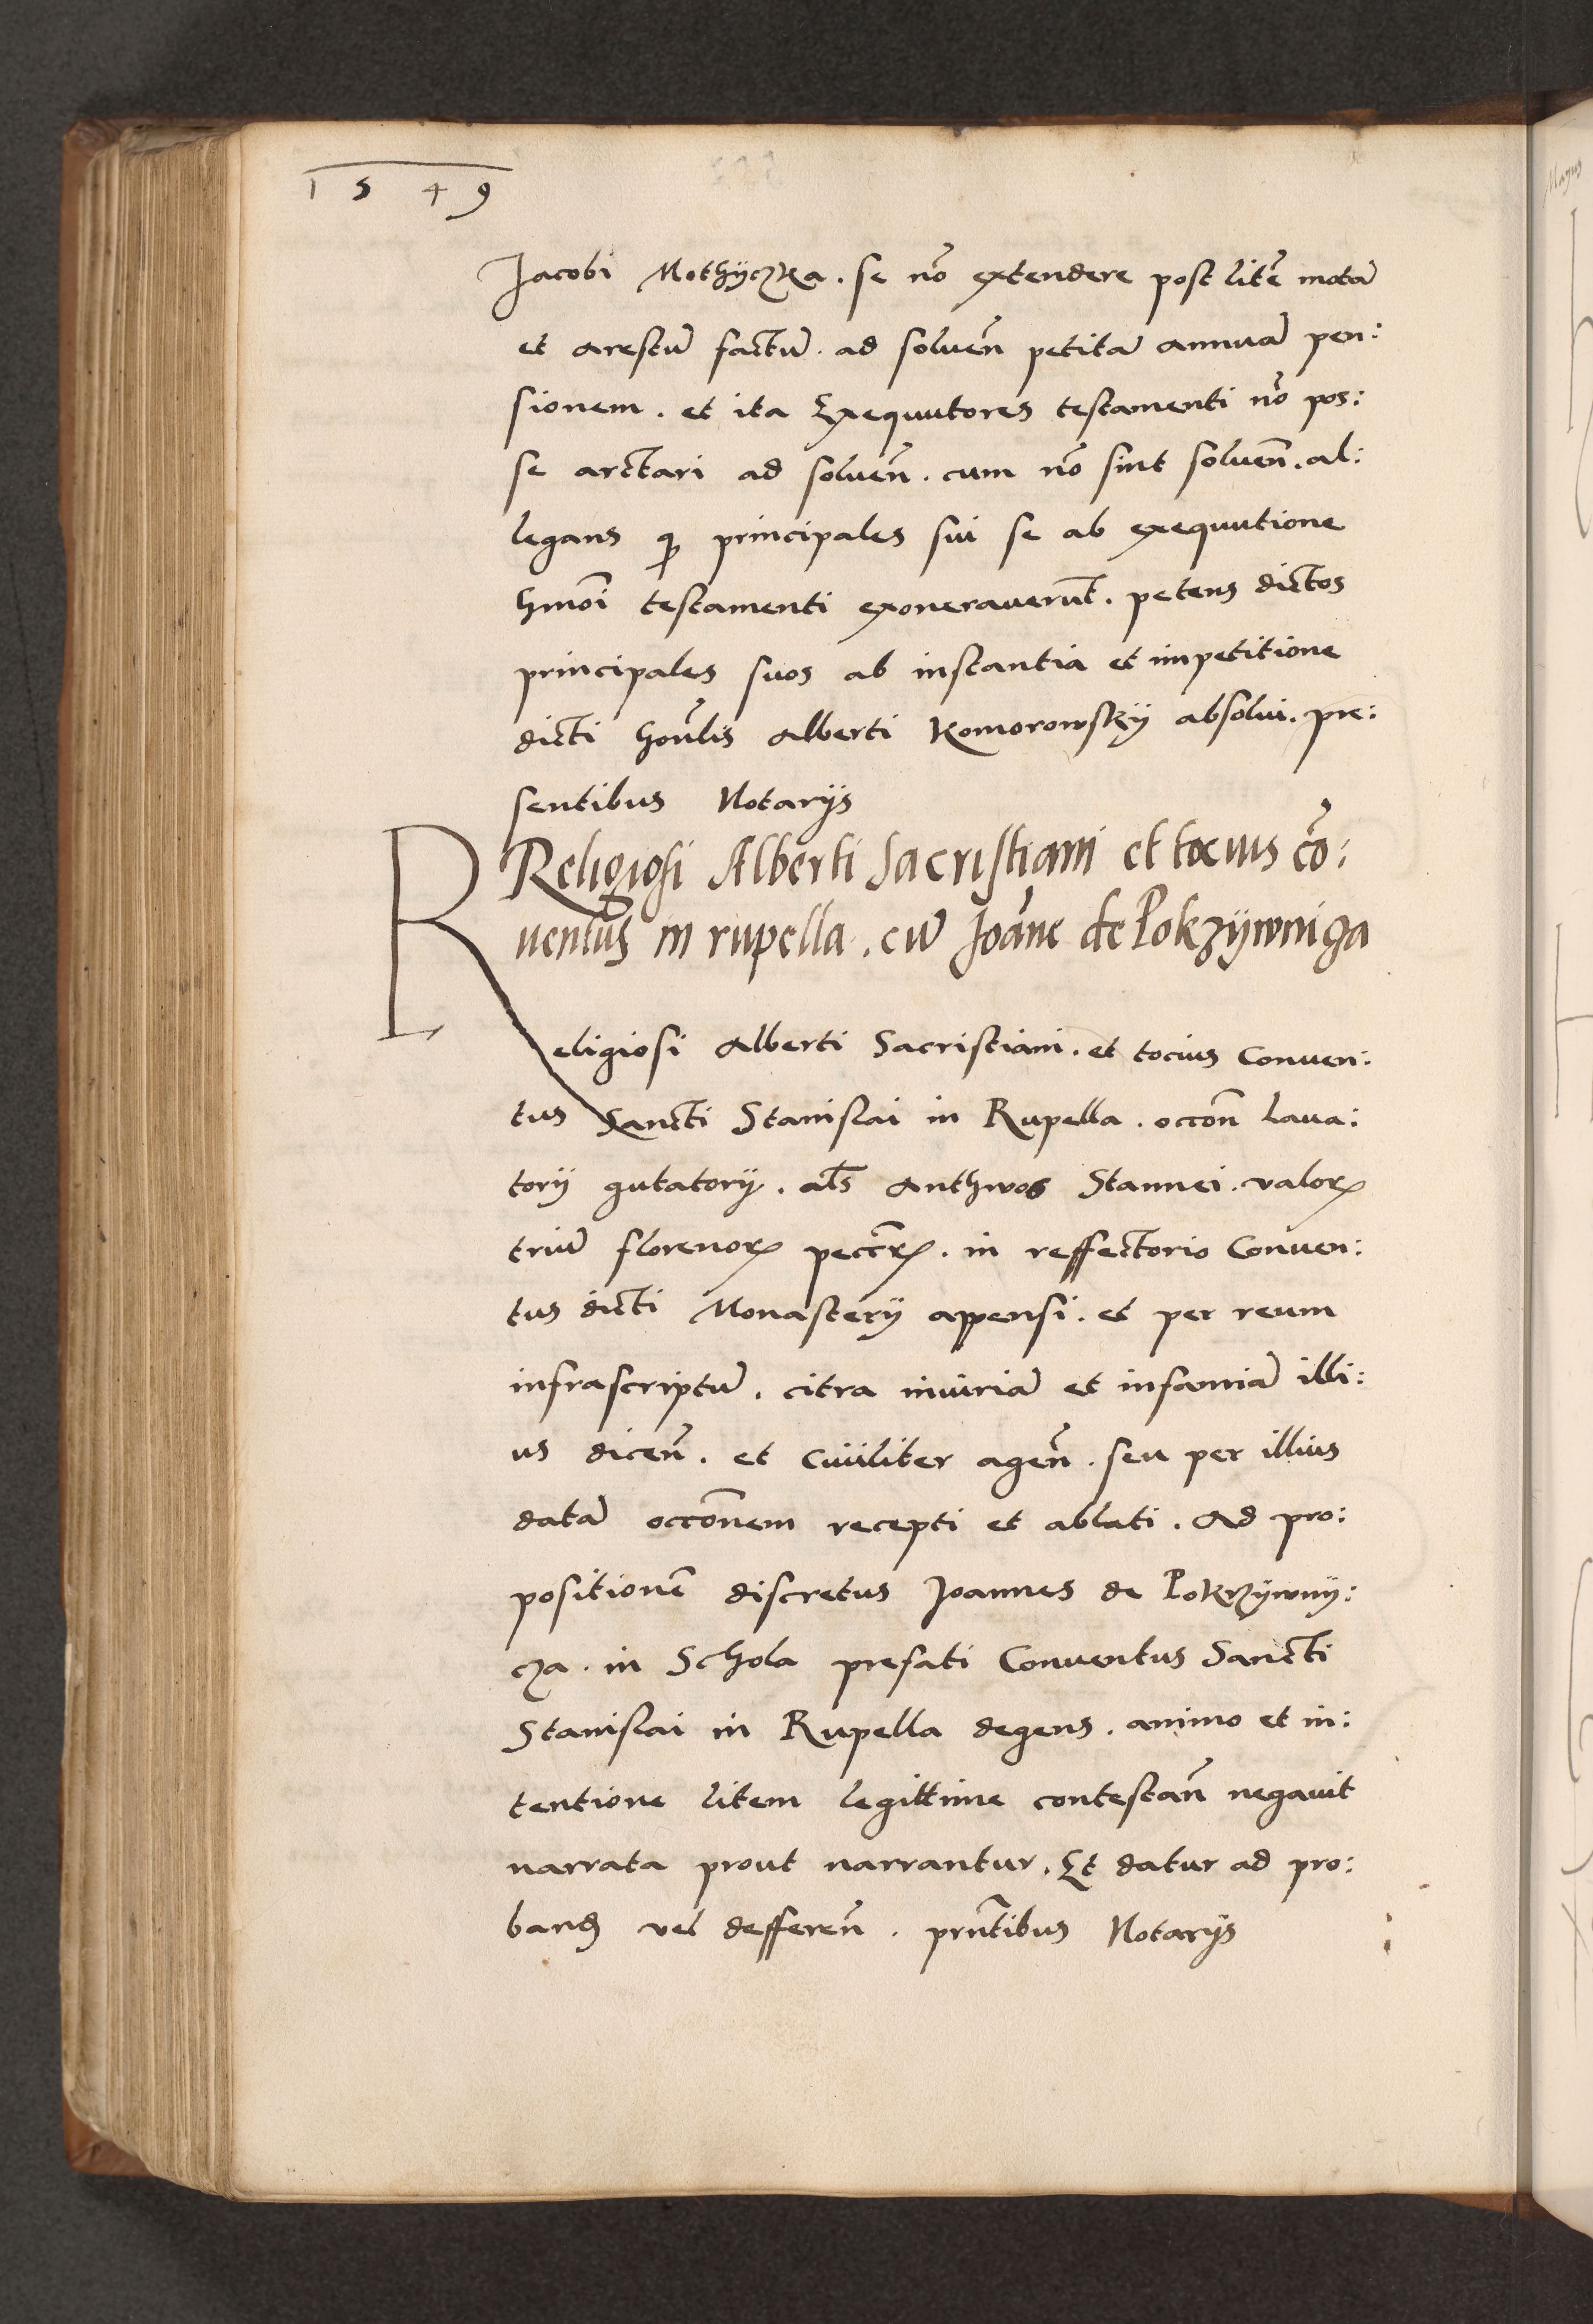 1549
Jacobi Mothÿczka. se nõ extendere post litẽ motã
et arestũ factũ. ad soluen̄ petitã annuã pen:
sionem. et ita Exequutores testamenti nõ pos:
se arctari ad soluen̄. cum nõ sint soluen̄. al:
legans ꝙ principales sui se ab exequutione
hmōi testamenti exonerauerūt. petens dictos
principales suos ab instantia et impetitione
dicti honᷓlis Alberti Komorowskÿ absolui. pre:
sentibus Notarÿs
Religiosi Alberti Sacristiani et tocius cõ:
uentus in rupella. cũ Joãne de Pokzÿwniga
Religiosi Alberti Sacristiani. et tocius Conuen:
tus Sancti Stanislai in Rupella. occōn laua:
torÿ gutatorÿ. als̄ Anthwos Stannei. valorꝭ
triũ florenorꝝ pecc̄rꝝ. in reffectorio Conuen:
tus dicti Monasterÿ appensi. et per reum
infrascriptũ. citra iniuriã et infamiã illi:
us dicen̄. et Ciuiliter agen̄. seu per illius
datã occōnem recepti et ablati. Ad pro:
positionẽ discretus Joannes de Pokrzÿwnÿ:
cza. in Schola prefati Conuentus Sancti
Stanislai in Rupella degens. animo et in:
tentione litem legittime contestan̄ negauit
narrata prout narrantur. Et datur ad pro:
band vel defferen̄. prn̄tibus Notarÿs